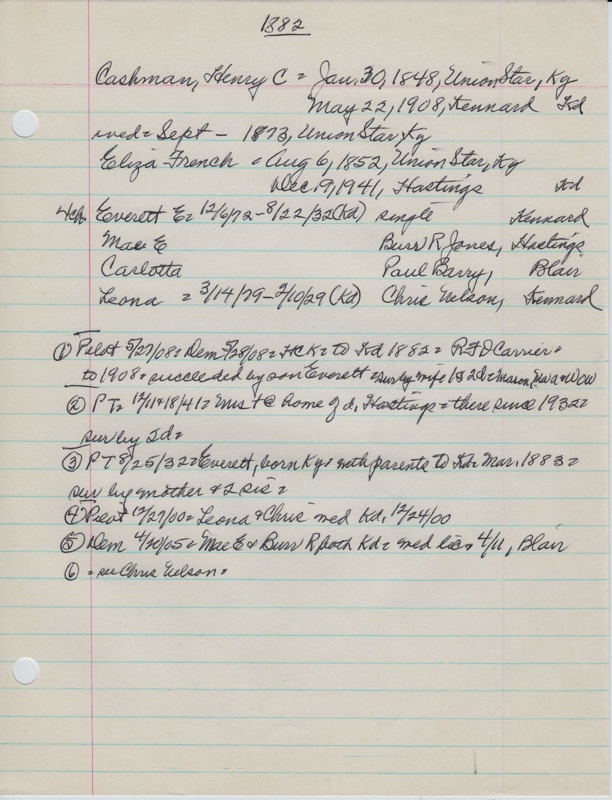 1882
Cashman, Henry C = Jan. 30, 1848, Union Star, Ky
May 22, 1908, Kennard Kd
wed = Sept - 1873, Union Star, Ky
Eliza French = Aug 6, 1852, Union Star, Ky
Dec. 9, 1941, Hastings Kd
4 ch Everett E = 12/6/72 - 8/22/32 (Kd) single Kennard
Mae E Burr R Jones, Hastings
Carlotta Paul Barry, Blair
Leona = 3/14/79 - 2/10/29 (Kd) Chris Nelson, Kennard
① Pilot 5/27/08 = Dem 5/28/08 = HCK = to Kd 1882 = RFD Carrier =
to 1908 = succeeded by son Everett = sur by wife 1s 2d = Mason, & WOW
② PT = 12/11 & 18/41 = @ home of d, Hastings = there since 1932 =
sur by 2d =
③ PT 8/25/32 = Everett, born Ky & with parents to Kd = Mar. 1883 =
sur by mother & 2 sis =
④ Pilot 12/27/00 = Leona & Chris wed Kd, 12/24/00
⑤ Dem 4/20/05 = Mae E & Burr R both Kd = wed lic = 4/11, Blair
⑥ = see Chris Nelson =